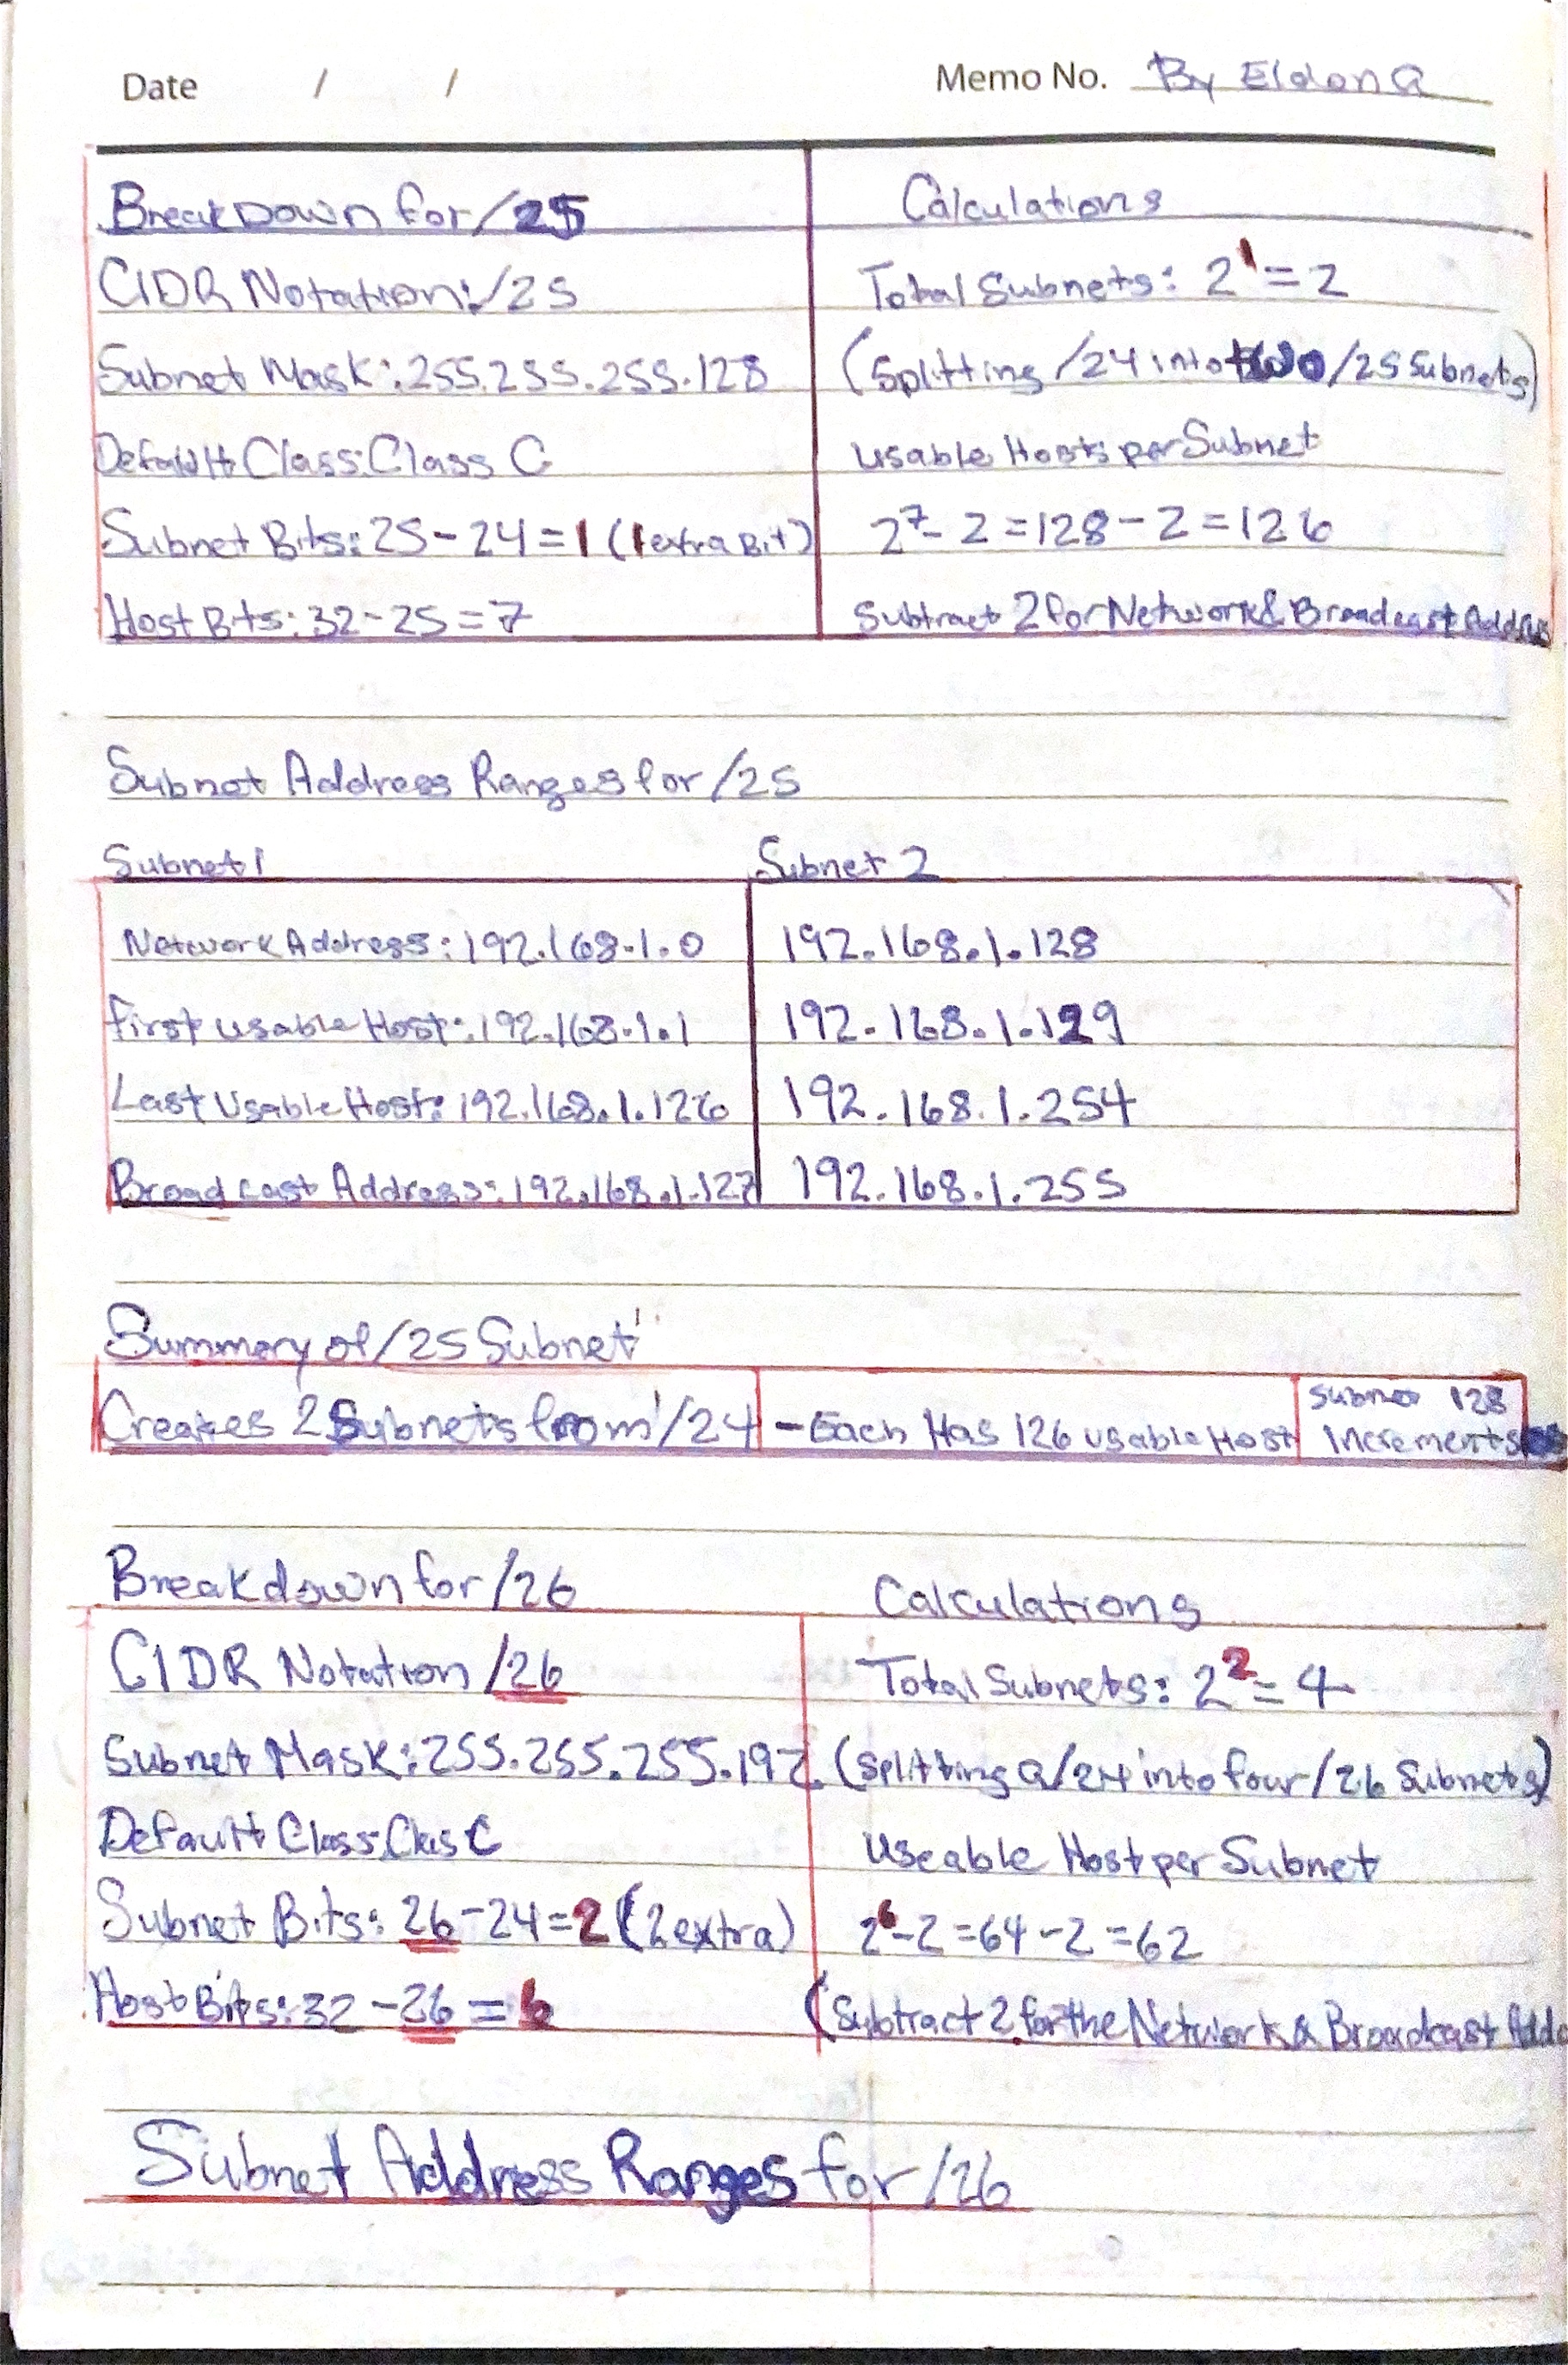 Date / / Memo No. By Eldon G
Breakdown for /25
Calculations
CIDR Notation: /25
Total Subnets: 2¹ = 2
Subnet Mask: 255.255.255.128
(Splitting /24 into two /25 Subnets)
Default Class: Class C
Usable Hosts per Subnet
Subnet Bits: 25 - 24 = 1 (1 extra Bit)
2⁷ - 2 = 128 - 2 = 126
Host Bits: 32 - 25 = 7
Subtract 2 for Network & Broadcast
Subnet Address Ranges for /25
Subnet 1
Subnet 2
Network Address: 192.168.1.0
192.168.1.128
First usable Host: 192.168.1.1
192.168.1.129
Last Usable Host: 192.168.1.126
192.168.1.254
Broadcast Address: 192.168.1.127
192.168.1.255
Summary of /25 Subnet
Creates 2 Subnets from /24
- Each Has 126 usable Host
Subnet 128
Increments
Breakdown for /26
Calculations
CIDR Notation /26
Total Subnets: 2² = 4
Subnet Mask: 255.255.255.192
(Splitting a /24 into four /26 Subnets)
Default Class: Clas C
Useable Host per Subnet
Subnet Bits: 26 - 24 = 2 (2 extra)
2⁶ - 2 = 64 - 2 = 62
Host Bits: 32 - 26 = 6
(Subtract 2 for the Network & Broadcast
Subnet Address Ranges for /26